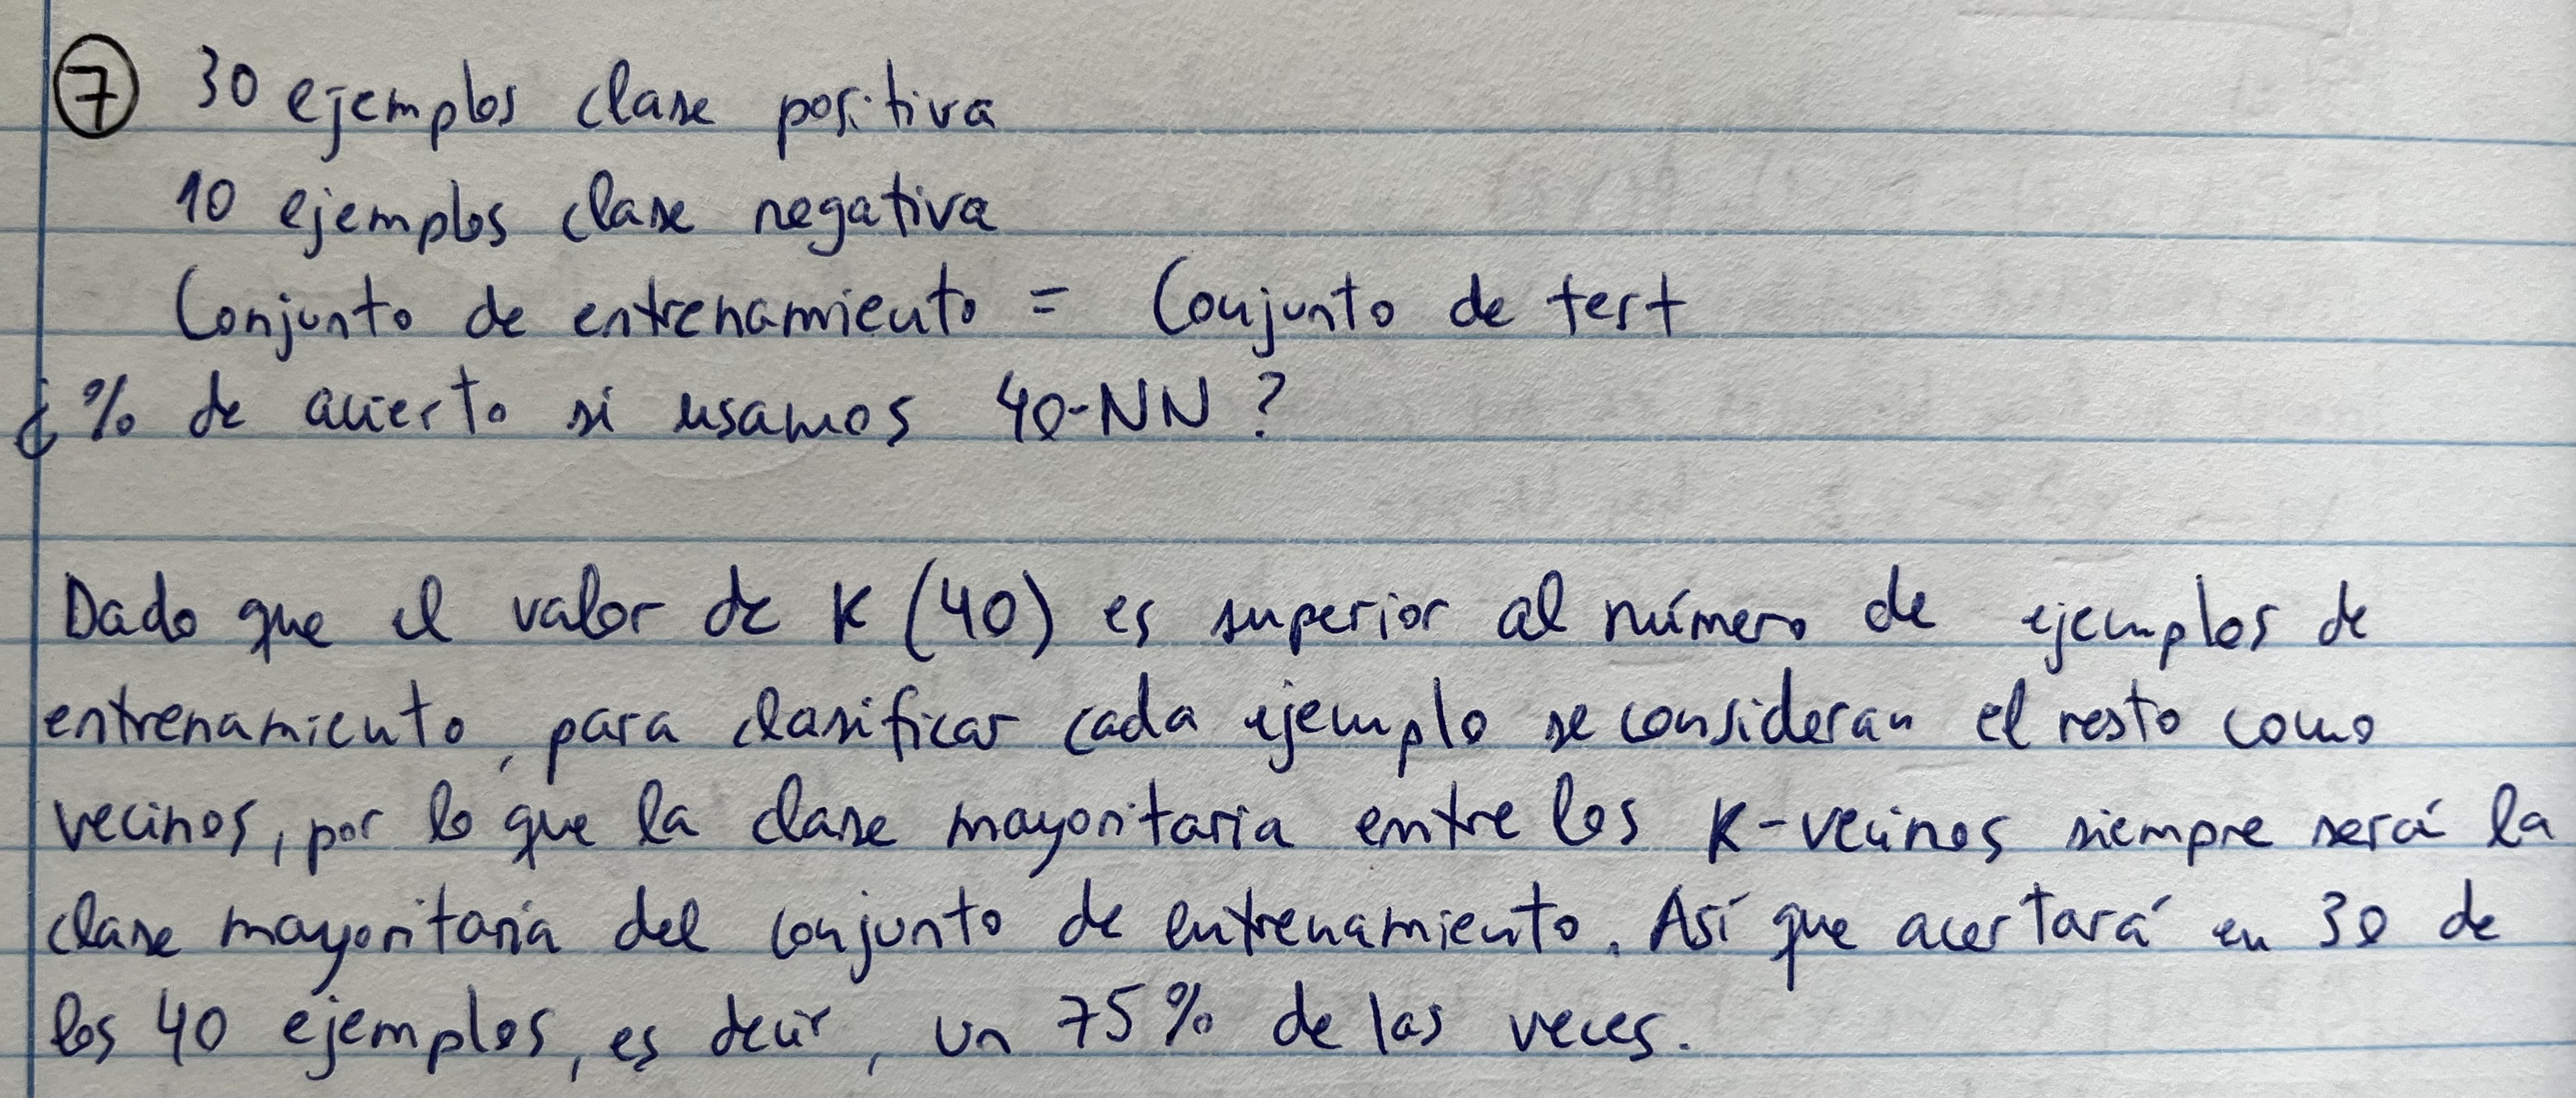 7 30 ejemplos clase positiva
10 ejemplos clase negativa
Conjunto de entrenamiento = Conjunto de test
¿% de acierto si usamos 40-NN?
Dado que el valor de K (40) es superior al número de ejemplos de
entrenamiento, para clasificar cada ejemplo se consideran el resto como
vecinos, por lo que la clase mayoritaria entre los K-vecinos siempre será la
clase mayoritaria del conjunto de entrenamiento. Así que acertará en 30 de
los 40 ejemplos, es decir, un 75% de las veces.